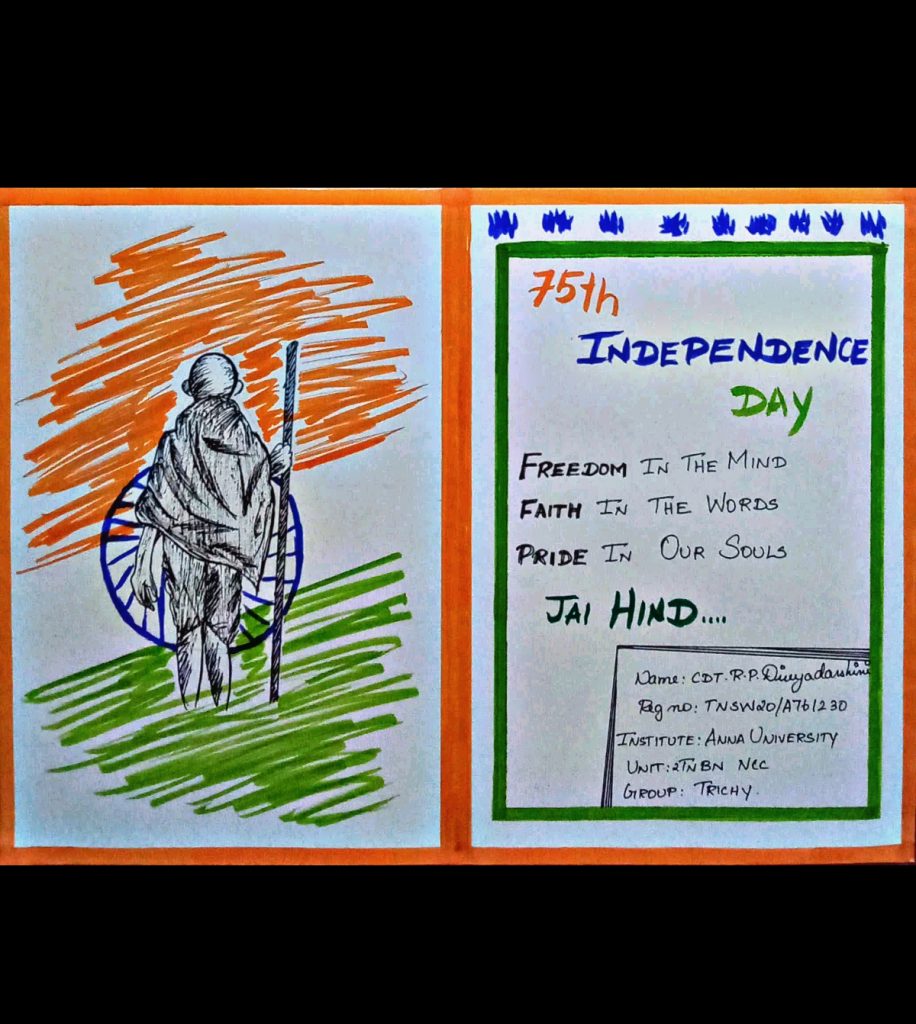 75th
INDEPENDENCE
DAY
FREEDOM IN THE MIND
FAITH IN THE WORDS
PRIDE IN OUR SOULS
JAI HIND....
Name: CDT. R.P. Divyadarshini
Reg no: TNSW20/A761230
INSTITUTE: ANNA UNIVERSITY
UNIT: 2TNBN NCC
GROUP: TRICHY.